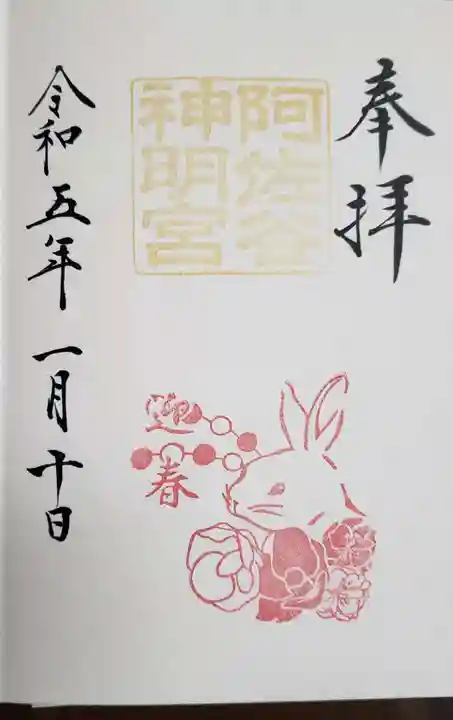 奉拝
阿佐谷
神明宮
迎春
令和五年一月十日